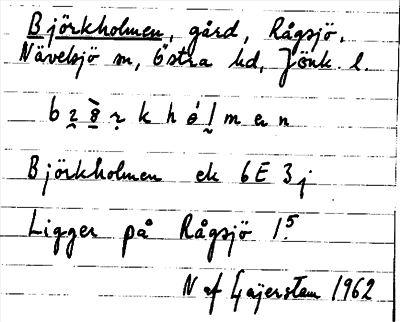 Björkholmen, gård, Rågsjö,
Nävelsjö sn, Östra hd, Jönk. l.
b z 8 r k h ó l m e n
Björkholmen ek 6E 3j
Ligger på Rågsjö 1⁵.
N af Geijerstam 1962